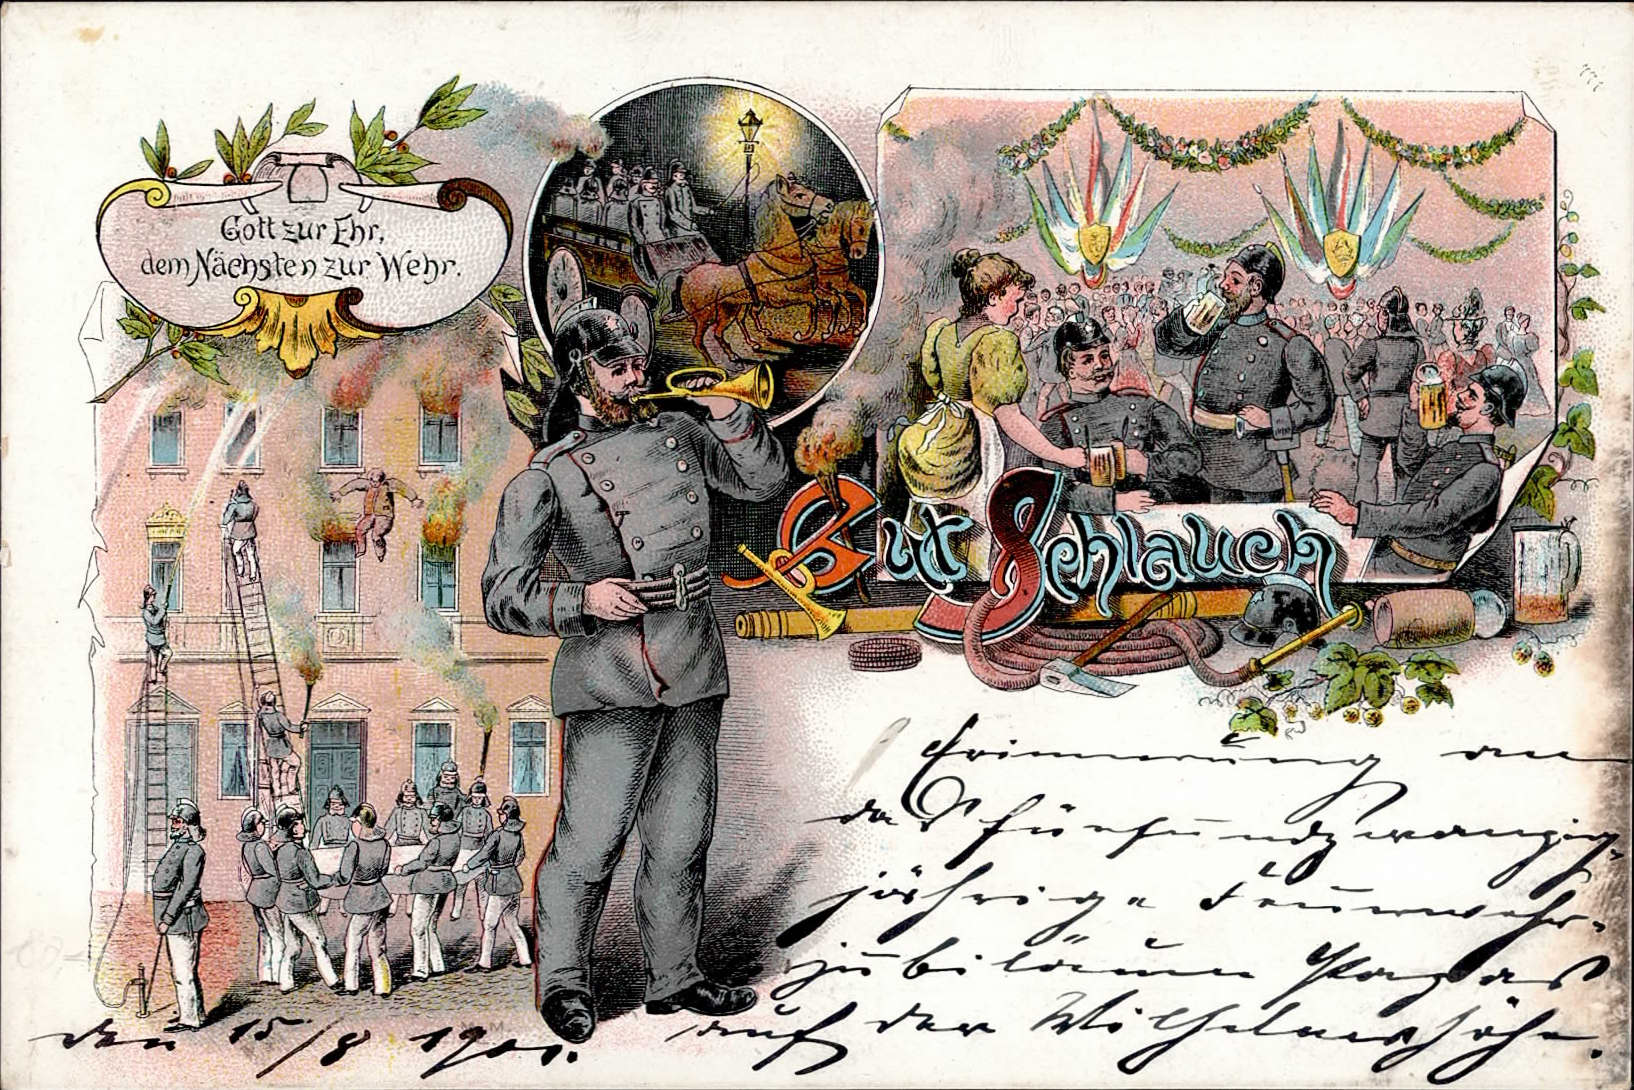 Gott zur Ehr,
dem Nächsten zur Wehr.
Gut Schlauch
Erinnerung an
das fünfundzwanzig
jährige Feuerwehr-
jubiläum
auf der Wilhelmshöhe.
den 15/8 1901.